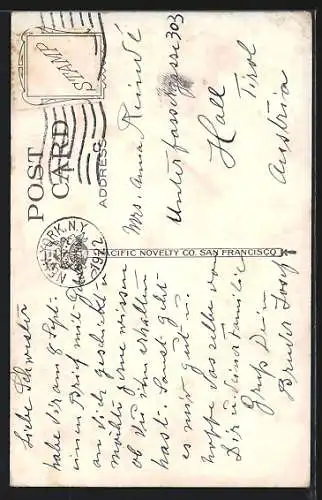 POST CARD
ADDRESS
STAMP
NEW YORK, N.Y.
1922
Mrs. Anna
Unterfassergasse 303
Hall
Tirol
Austria
PACIFIC NOVELTY CO. SAN FRANCISCO
Liebe Schwester
habe dir am 8 Sept.
einen Brief mit
an dich geschickt u.
möchte gerne wissen
ob du ihn erhalten
hast. Sonst geht
es mir gut u.
hoffe dasselbe von
Dir u. deine Familie
Gruß Dein
Bruder Josef